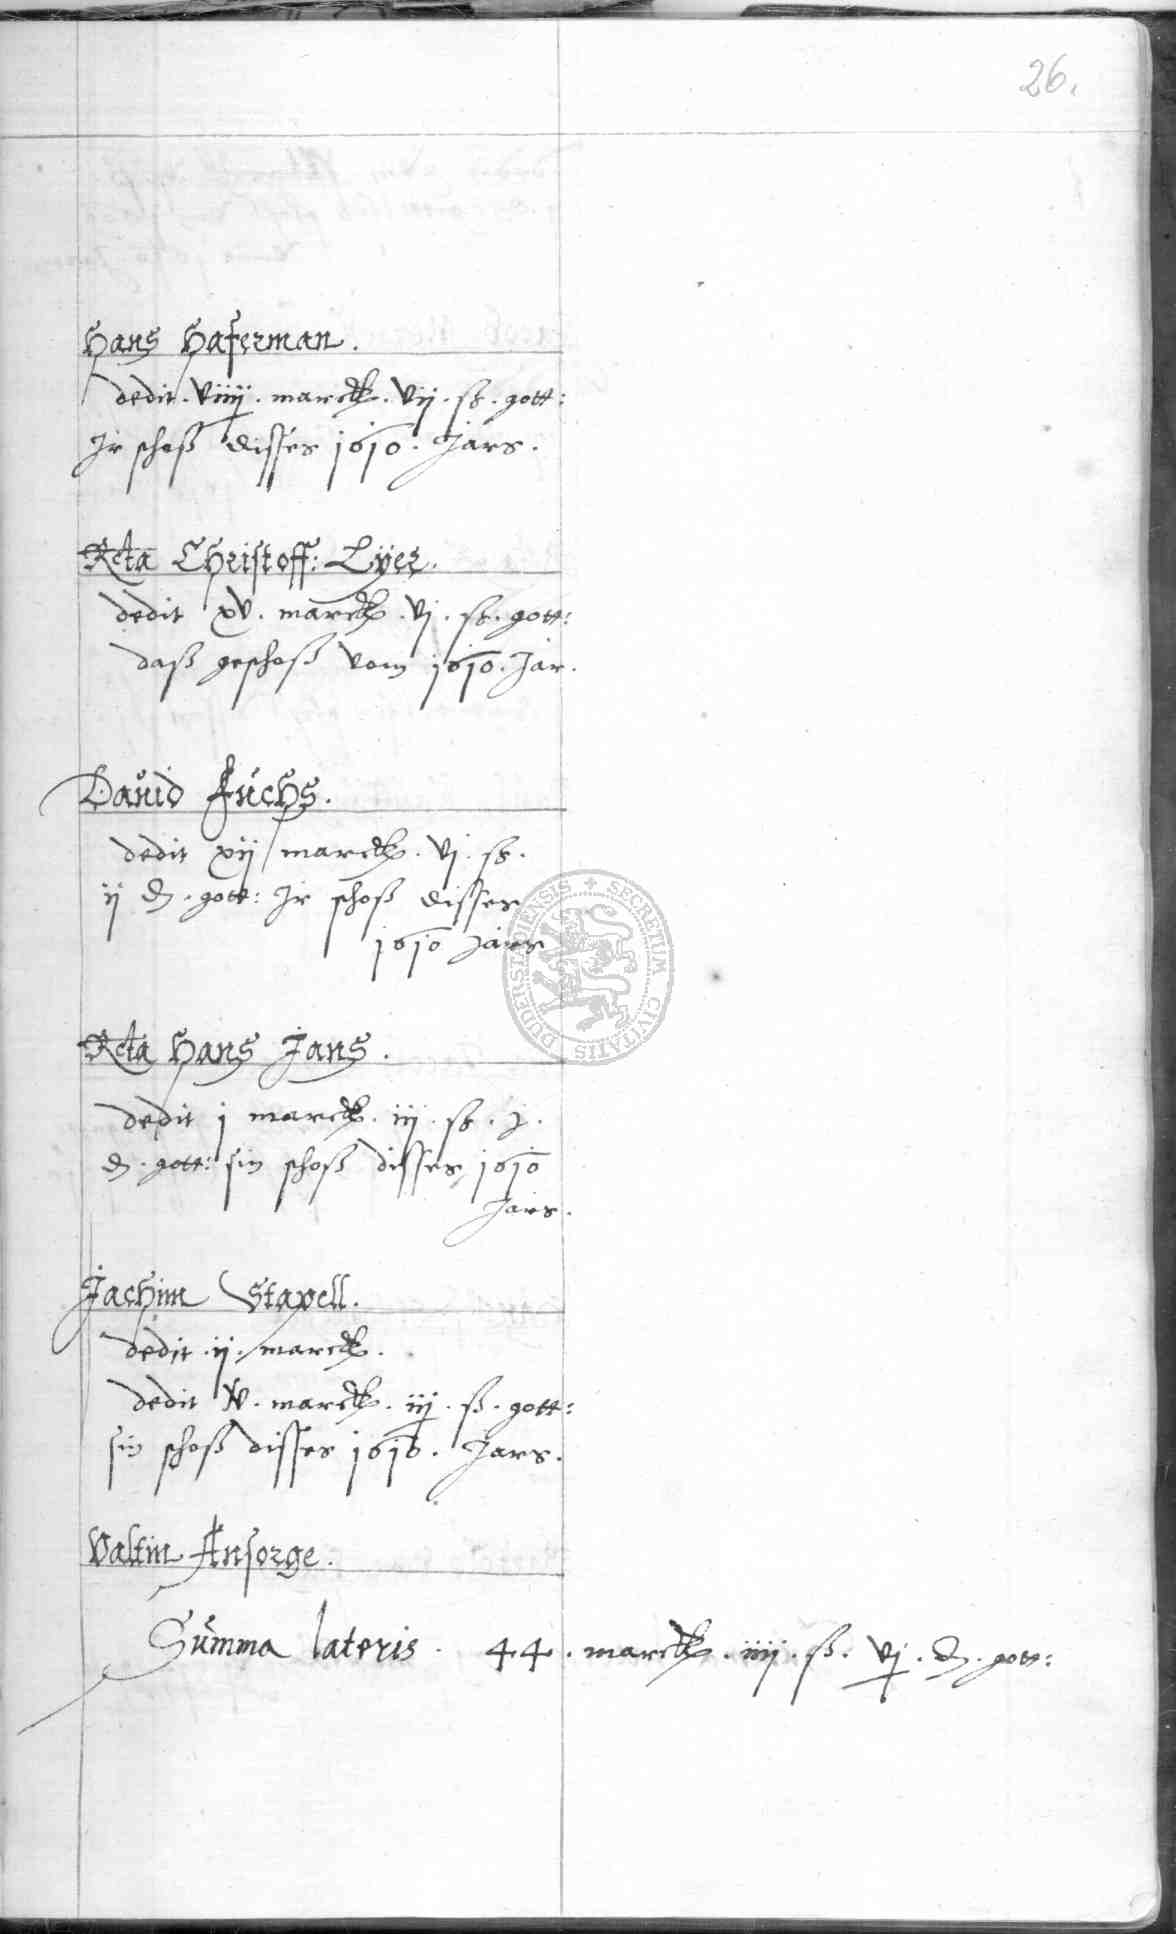 26.
Hans Haferman.
dedit. viiij. marck. vij. ß. gott:
Ir schoß disses 1610. Jars.
Rcta Christoff: Lÿer.
dedit xv. marck. vj. ß. gott:
daß geschoß vom 1610. Jar.
Dauid Fuchs.
dedit xij marck. vj. ß.
ij d. gott: Ir schoß disses
1610 Jars
Rcta Hans Jans.
dedit j marck. iij. ß. j.
d. gott: sin schoß disses 1610
Jars.
Jachim Stapell.
dedit. ij. marck.
dedit v. marck. iij. ß. gott:
sin schoß disses 1610. Jars.
Valtin Ansorge.
Summa lateris. 44. marck. iiij. ß. vj. d. gott:
SECRETUM CIVITATIS DUDERSTADIENSIS